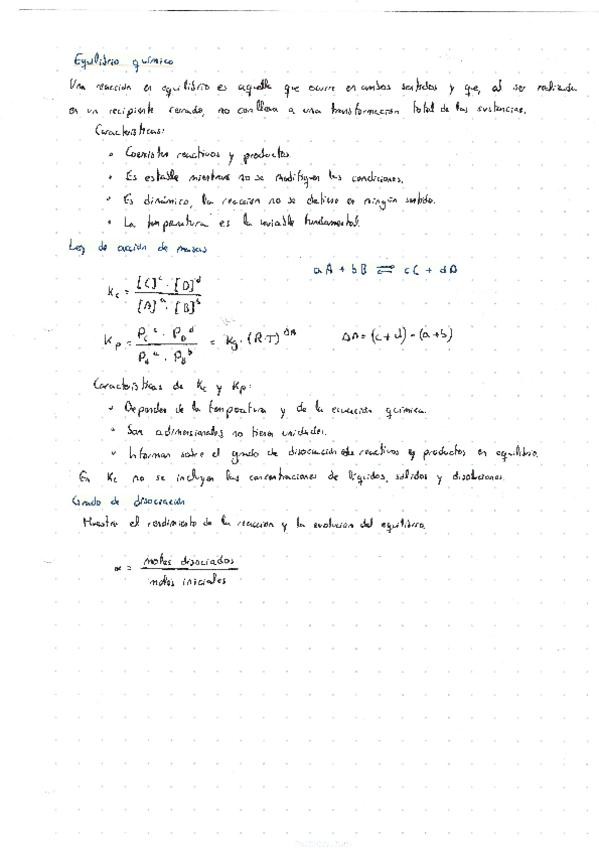 Equilibrio químico
Una reacción en equilibrio es aquella que ocurre en ambos sentidos y que, al ser realizada
en un recipiente cerrado, no conlleva a una transformación total de las sustancias.
Características:
• Coexisten reactivos y productos.
• Es estable mientras no se modifiquen las condiciones.
• Es dinámico, la reacción no se detiene en ningún sentido.
• La temperatura es la variable fundamental.
Ley de acción de masas
aA + bB ⇌ cC + dD
Kc = [C]^c · [D]^d / [A]^a · [B]^b
Kp = Pc^c · PD^d / PA^a · PB^b = Kc · (R·T)^Δn    Δn = (c+d) - (a+b)
Características de Kc y Kp:
• Dependen de la temperatura y de la ecuación química.
• Son adimensionales, no tienen unidades.
• Informan sobre el grado de disociación de reactivos y productos en equilibrio.
En Kc no se incluyen las concentraciones de líquidos, sólidos y disoluciones.
Grado de disociación
Muestra el rendimiento de la reacción y la evolución del equilibrio.
α = moles disociados / moles iniciales